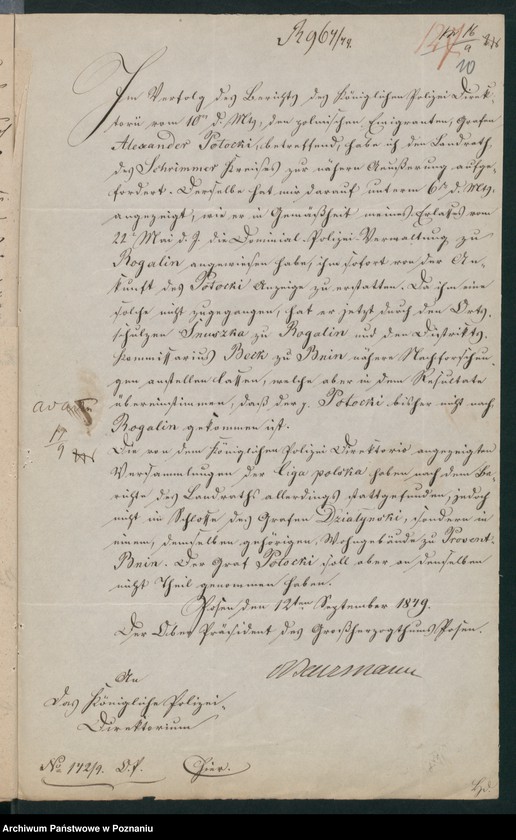 R 964/49.
16/9
10
Im Verfolg des Berichts des Königlichen Polizei Direk-
torii vom 10ten d. Mts, den polnischen Emigranten, Grafen
Alexander Potocki, betreffend, habe ich den Landrath
des Schrimmer Kreises zur nähern Aeußerung aufge-
fordert. Derselbe hat mir darauf unterm 6ten d. Mts.
angezeigt, wie er in Gemäßheit meines Erlasses vom
22 Mai d. J. die Dominial-Polizei-Verwaltung zu
Rogalin angewiesen habe, ihm sofort von der An-
kunft des Potocki Anzeige zu erstatten. Da ihm eine
solche nicht zugegangen, hat er jetzt durch den Orts-
schulzen Snuszka zu Rogalin und den Distrikts-
Kommissarius Beck zu Bnin nähere Nachforschun-
gen anstellen lassen, welche aber in dem Resultate
übereinstimmen, daß der p. Potocki bisher nicht nach
Rogalin gekommen ist.
ad acta
17/9
Die von dem Königlichen Polizei Direktorio angezeigten
Versammlungen der Liga polska haben nach dem Be-
richte des Landraths allerdings stattgefunden, jedoch
nicht im Schlosse des Grafen Dzialynski, sondern in
einem, demselben gehörigen, Wohngebäude zu Provent-
Bnin. Der Graf Potocki soll aber an denselben
nicht Theil genommen haben.
Posen den 12ten September 1849.
Der Ober Präsident des Großherzogthums Posen.
An
Das Königliche Polizei-
Direktorium
No 1429. O.P. Hier.
Archiwum Państwowe w Poznaniu